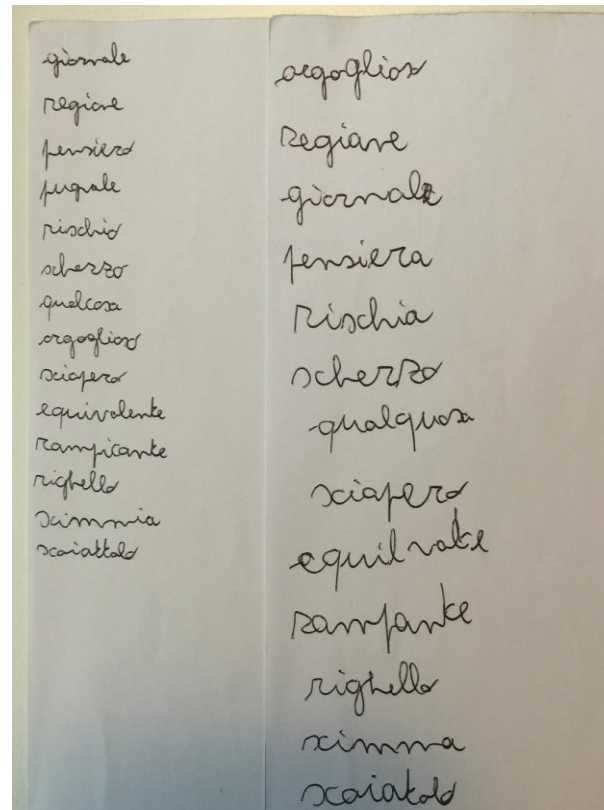 giornale
regione
pensiero
pugnale
rischio
scherzo
qualcosa
orgoglioso
sciapero
equivalente
rampicante
righello
scimmia
scoiattolo
orgoglioso
regiane
giornale
pensiera
rischia
scherzo
qualquosa
sciapero
equilvalte
rampante
righello
scimma
scoiatolo